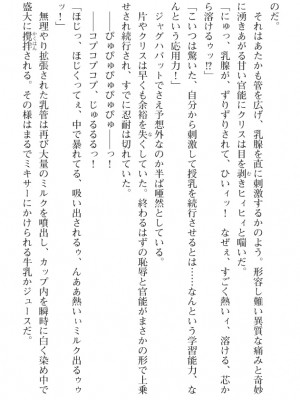 のだ。
　それはあたかも管を広げ、乳腺を直に刺激するかのよう。形容し難い異質な痛みと奇妙
に湧きあがる甘い官能にクリスは目を剥きヒィヒィと喘いだ。
「にゅっ、乳腺が、ずりずりされて、ひぃィッ！　なぜぇ、すごく熱いィ、溶ける、芯か
ら溶けるゥッ!?」
「こいつは驚いた、自分から刺激して授乳を続行させるとは……なんという学習能力、な
んという応用力！」
　ジャグハバットでさえ予想外なのか半ば唖然としている。
　片やクリスは早くも余裕を失くしていた。終わるはずの恥辱と官能がまさかの形で上乗
せされ続行され、すでに忍耐は切れていた。
　――ぴゅぴゅぴゅぴゅぴゅーっ！
　――コプコプコプ、じゅるるるっ！
「ほじっ、ほじくつてぇ、中で暴れてる、吸い出されるゥ、んああ熱いぃミルク出るゥゥ
ッ！」
　無理やり拡張された乳管は再び大量のミルクを噴出し、カップ内を瞬時に白く染め中で
盛大に攪拌される。その様はまるでミキサーにかけられる牛乳かジュースだ。